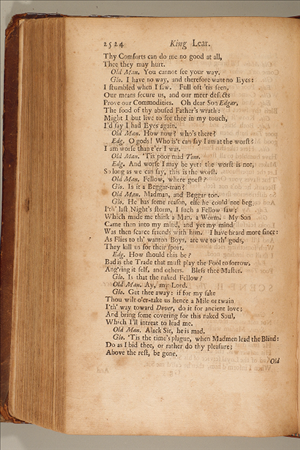 2524 King Lear.
Thy Comforts can do me no good at all,
Thee they may hurt.
Old Man. You cannot see your way.
Glo. I have no way, and therefore want no Eyes:
I stumbled when I saw. Full oft 'tis seen,
Our mean secure us, and our meer defects
Prove our Commodities. Oh dear Son Edgar,
The food of thy abused Father's wrath:
Might I but live to see thee in my touch,
I'd say I had Eyes again.
Old Man. How now? who's there?
Edg. O gods! Who is't can say I am at the worst?
I am worse than e'er I was.
Old Man. 'Tis poor mad Tom.
Edg. And worse I may be yet: the worst is not,
So long as we can say, this is the worst.
Old Man. Fellow, where goest?
Glo. Is it a Beggar-man?
Old Man. Madman, and Beggar too.
Glo. He has some reason, else he could not beg.
I'th' last Night's storm, I such a Fellow saw;
Which made me think a Man, a Worm. My Son
Came then into my mind, and yet my mind
Was then scarce friends with him. I have heard more since:
As Flies to th' wanton Boys, are we to th' gods,
They kill us for their sport.
Edg. How should this be?
Bad is the Trade that must play the Fool to sorrow,
Ang'ring it self, and others. Bless thee Master.
Glo. Is that the naked Fellow?
Old Man. Ay, my Lord.
Glo. Get thee away: if for my sake
Thou wilt o'er-take us hence a Mile or twain
I'th' way toward Dover, do it for ancient love;
And bring some covering for this naked Soul,
Which I'll intreat to lead me.
Old Man. Alack Sir, he is mad.
Glo. 'Tis the time's plague, when Madmen lead the Blind:
Do as I bid thee, or rather do thy pleasure;
Above the rest, be gone.
Old